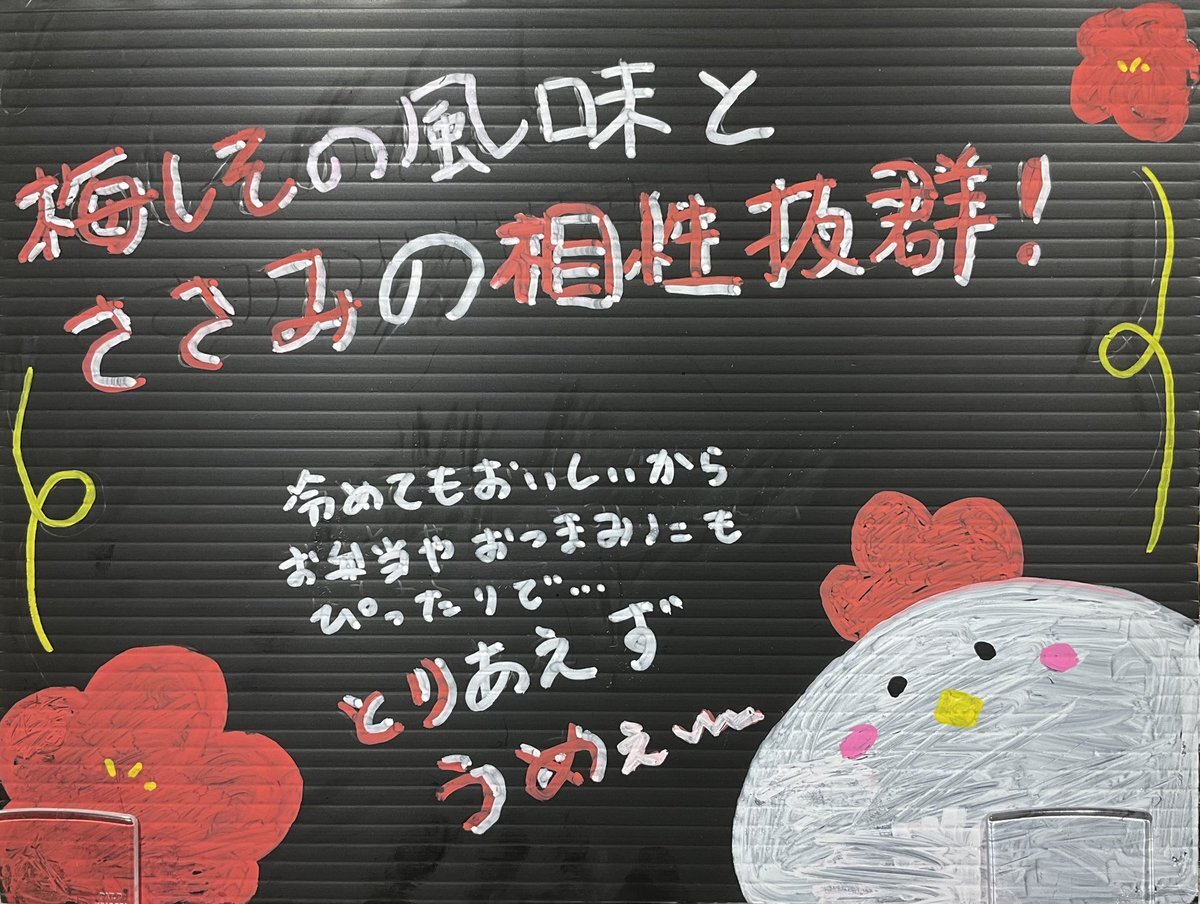 梅しその風味と
ささみの相性抜群!
冷めてもおいしいから
お弁当やおつまみにも
ぴったりで…
とりあえず
うめぇ〰